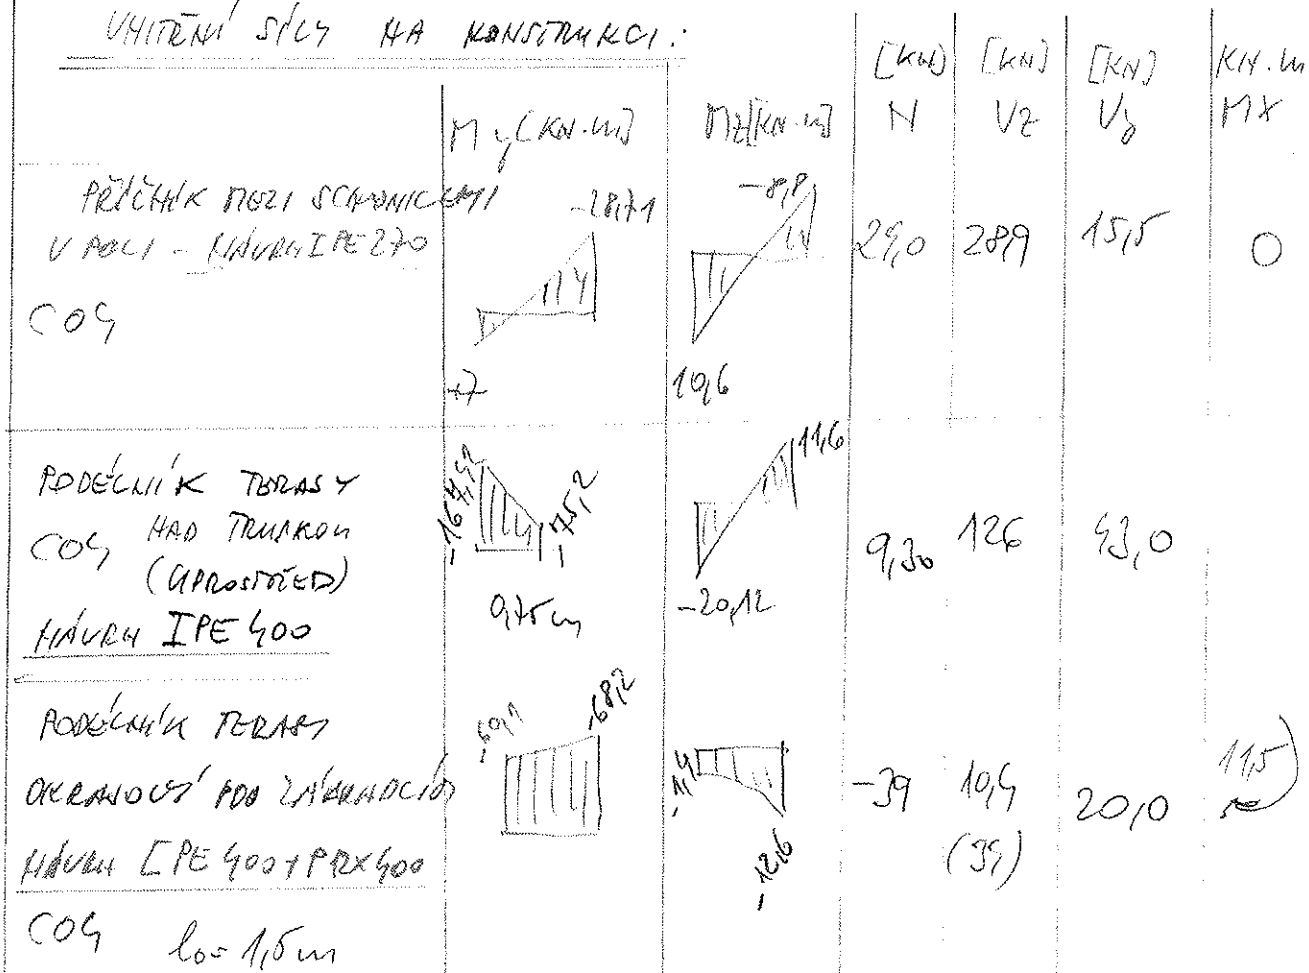 VNITŘNÍ SÍLY NA KONSTRUKCI:
My[KN.m] Mz[KN.m] [KN] N [KN] Vz [KN] Vy KN.m MX
PŘÍČNÍK MEZI SCHODNICEMI
V POLI - NÁVRH IPE 270
CO4
-28,71
+7
-8,8
10,6
24,0 28,9 15,5 0
PODÉLNÍK TERASY
CO4 NAD TRUBKOU
(UPROSTŘED)
NÁVRH IPE 400
-75,2
0,75m
11,6
-20,12
9,30 126 43,0
PODÉLNÍK TERASY
OKRAJOVÝ POD
NÁVRH IPE 400 + 400
CO4 lo= 1,5m
-68,2
-12,6
-39 10,4 20,0 11,5
(34)